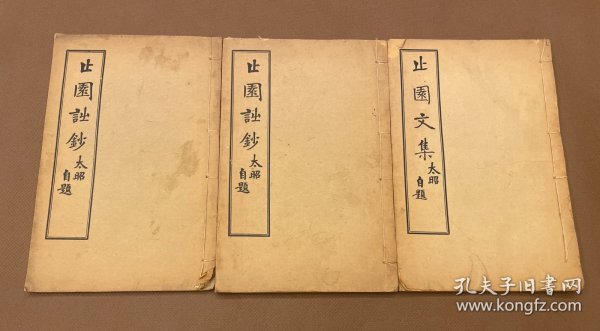 止園詩鈔
太昭
自題
止園詩鈔
太昭
自題
止園文集
太昭
自題
孔夫子旧书网
www.kongfz.com